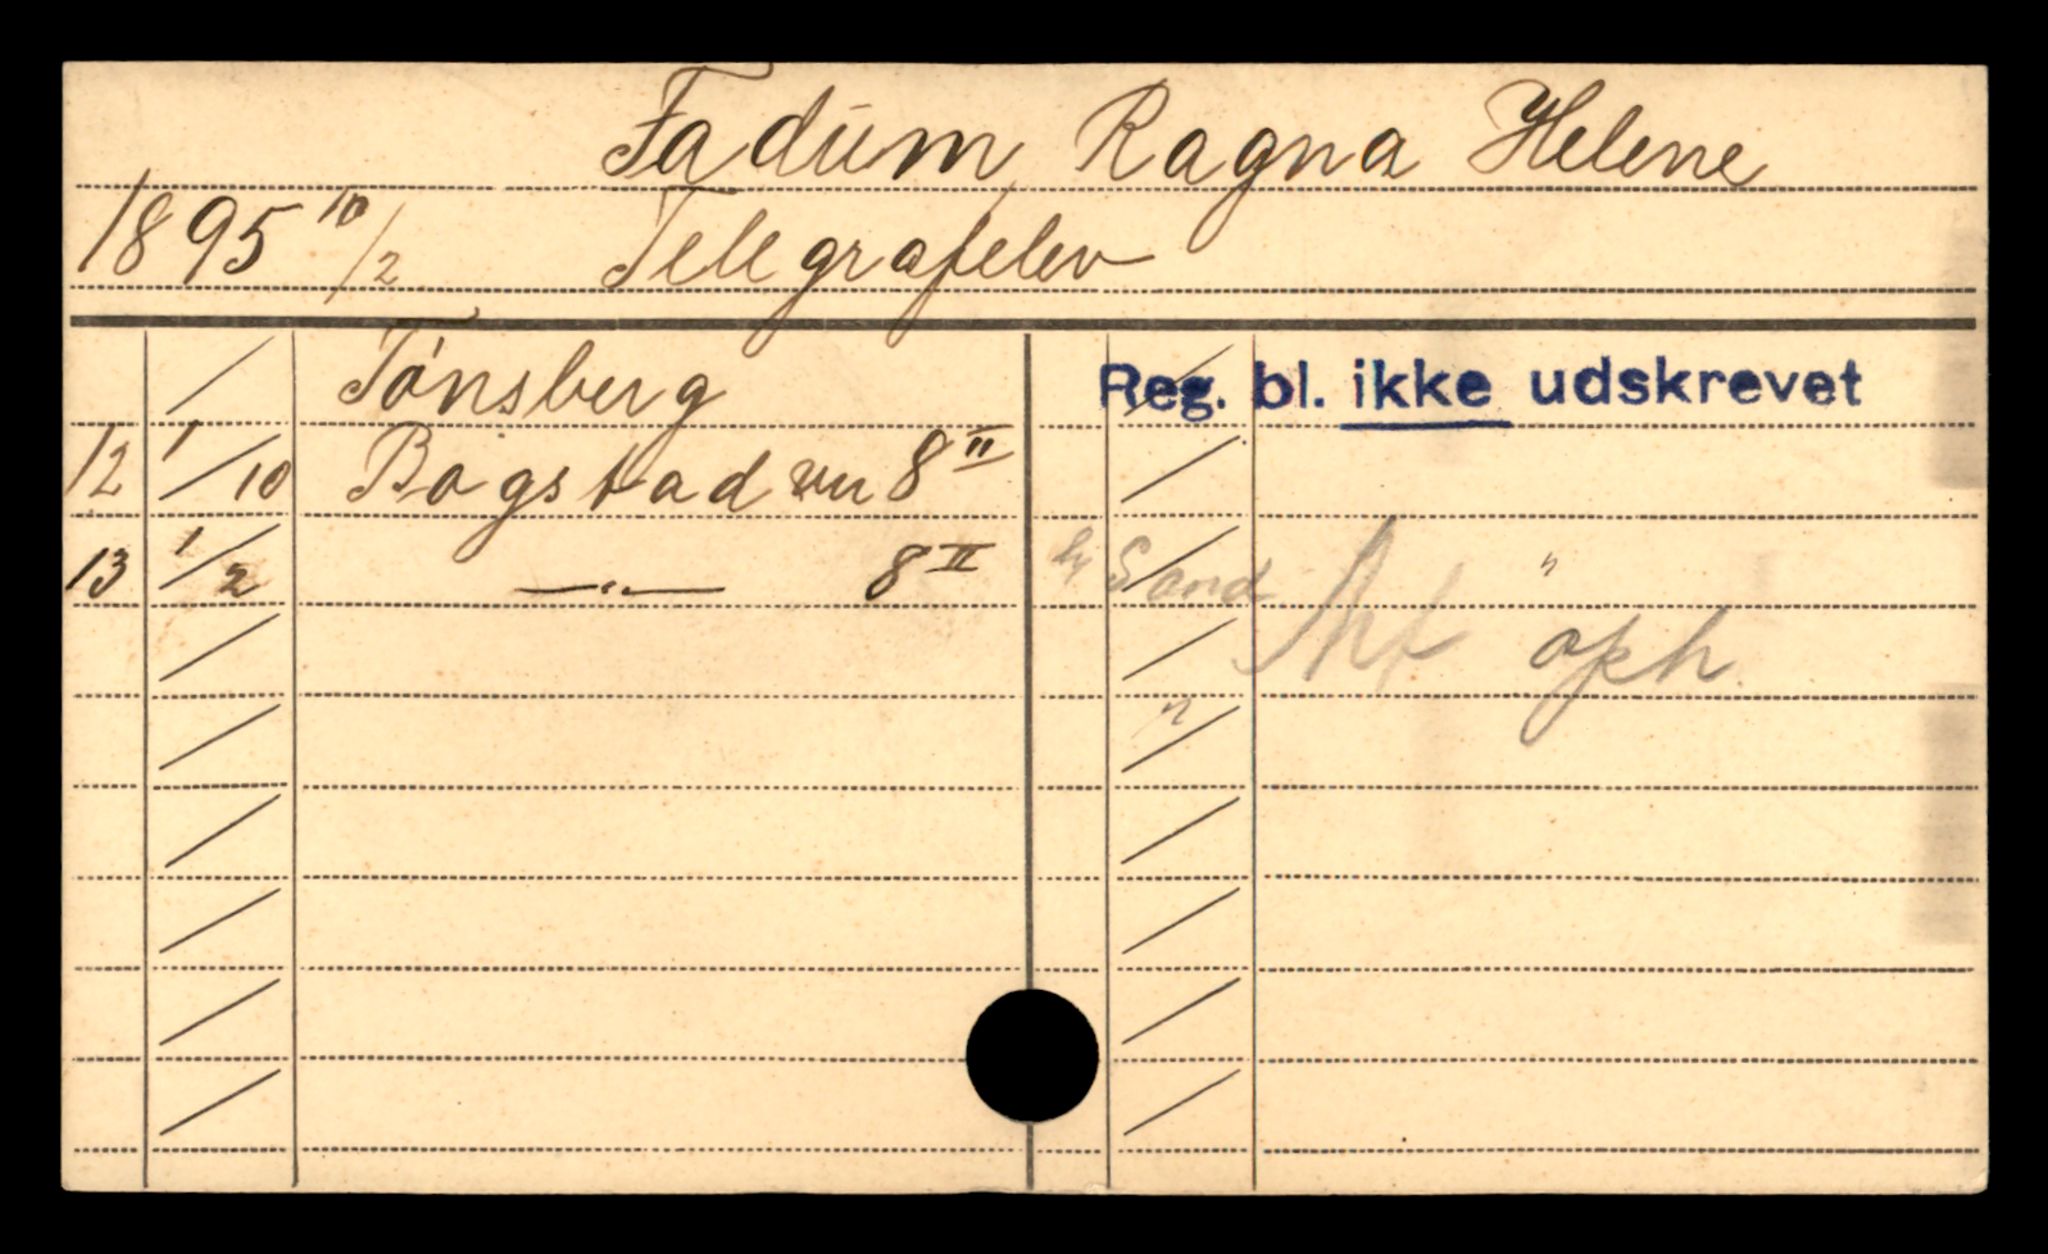 Fadum, Ragna Helene
1895 10/2 Telegrafelev
Tønsberg
12 1/10 Bogstadvn 8 II
13 1/2 —"— 8 II
Reg. bl. ikke udskrevet
Sand "
oph.
"